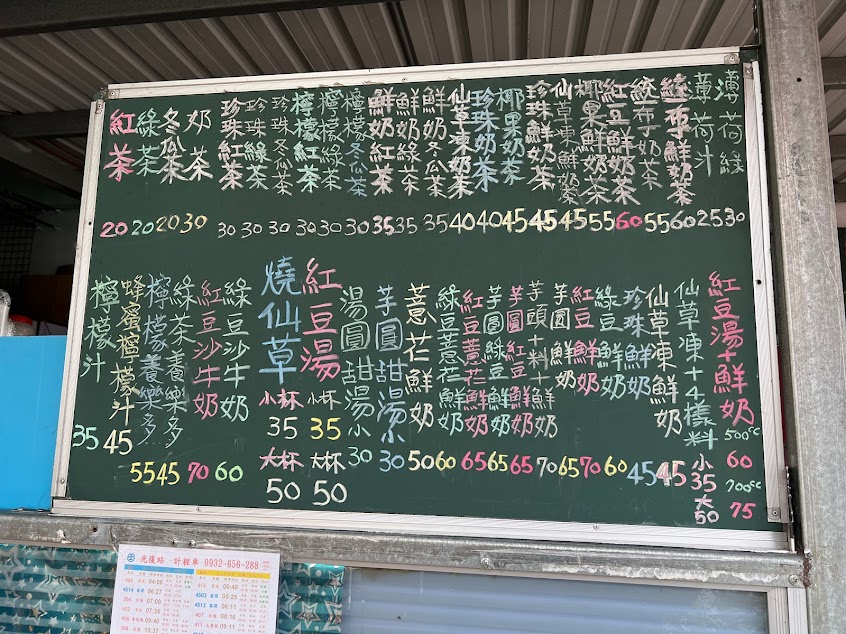 紅茶 20
綠茶 20
冬瓜茶 20
奶茶 30
珍珠紅茶 30
珍珠綠茶 30
珍珠冬瓜茶 30
檸檬紅茶 30
檸檬綠茶 30
檸檬冬瓜茶 30
鮮奶紅茶 35
鮮奶綠茶 35
鮮奶冬瓜茶 35
仙草凍奶茶 40
珍珠奶茶 40
椰果奶茶 45
珍珠鮮奶茶 45
仙草凍鮮奶茶 45
椰果鮮奶茶 55
紅豆鮮奶茶 60
統一布丁奶茶 55
統一布丁鮮奶茶 60
薄荷汁 25
薄荷綠 30
檸檬汁 35
蜂蜜檸檬汁 45
檸檬養樂多 55
綠茶養樂多 45
紅豆沙牛奶 70
綠豆沙牛奶 60
燒仙草 小杯 35 大杯 50
紅豆湯 小杯 35 大杯 50
湯圓甜湯小 30
芋圓甜湯小 30
薏芢鮮奶 50
綠豆薏芢鮮奶 60
紅豆薏芢鮮奶 65
芋圓綠豆鮮奶 65
芋圓紅豆鮮奶 65
芋頭+料+鮮奶 70
芋圓鮮奶 65
紅豆鮮奶 70
綠豆鮮奶 60
珍珠鮮奶 45
仙草凍鮮奶 45
仙草凍+4樣料 小35 大50
紅豆湯+鮮奶 500cc 60 700cc 75
光復站 - 計程車 0932-656-288